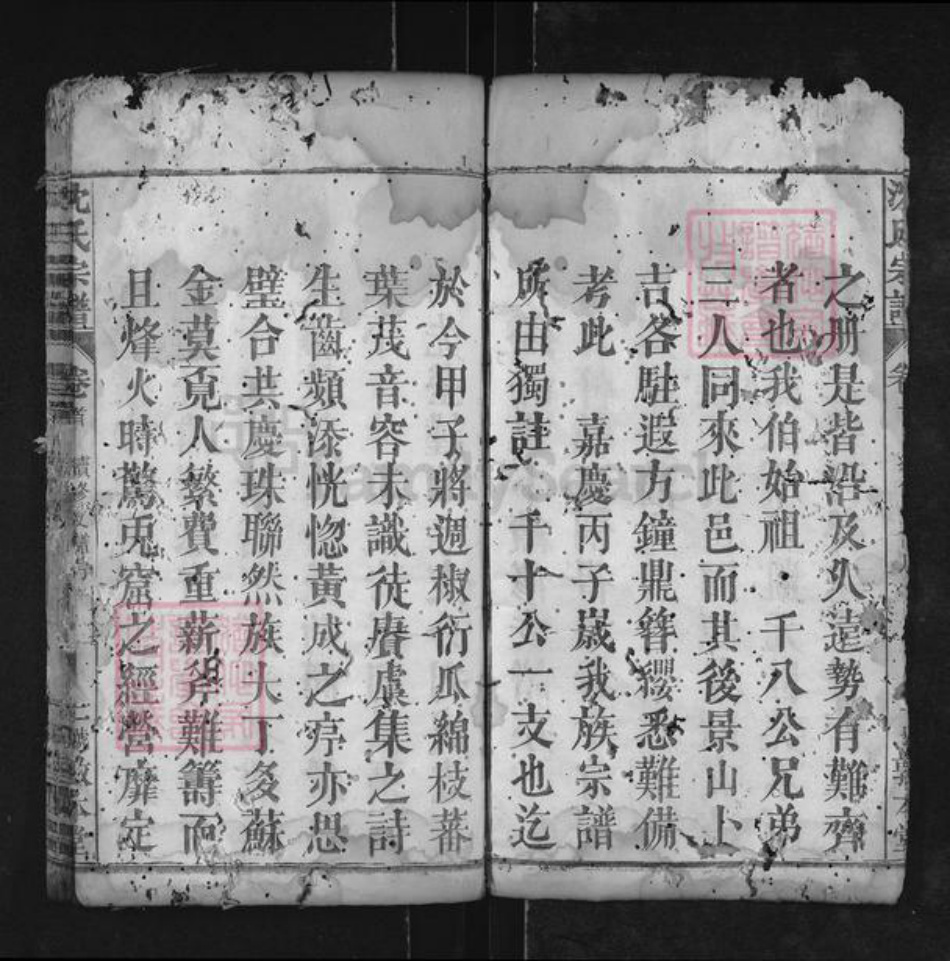 之册是皆詒及久遠勢有難齊
者也我伯始祖 千八公兄弟
三人同來此邑而其後景山卜
吉各駐遐方鐘鼎簪纓悉難備
考此 嘉慶丙子嵗我族宗譜
所由獨註 千十公一支也迄
於今甲子將週椒衍瓜綿枝蕃
葉茂音容未識徒賡虞集之詩
生齒頻添恍惚黃成之㝉亦思
璧合共慶珠聯然族大丁多蘇
金莫覔人繁費重薪斧難籌而
且烽火時驚兎窟之經營靡定
沈氏宗譜
卷首
FamilySearch